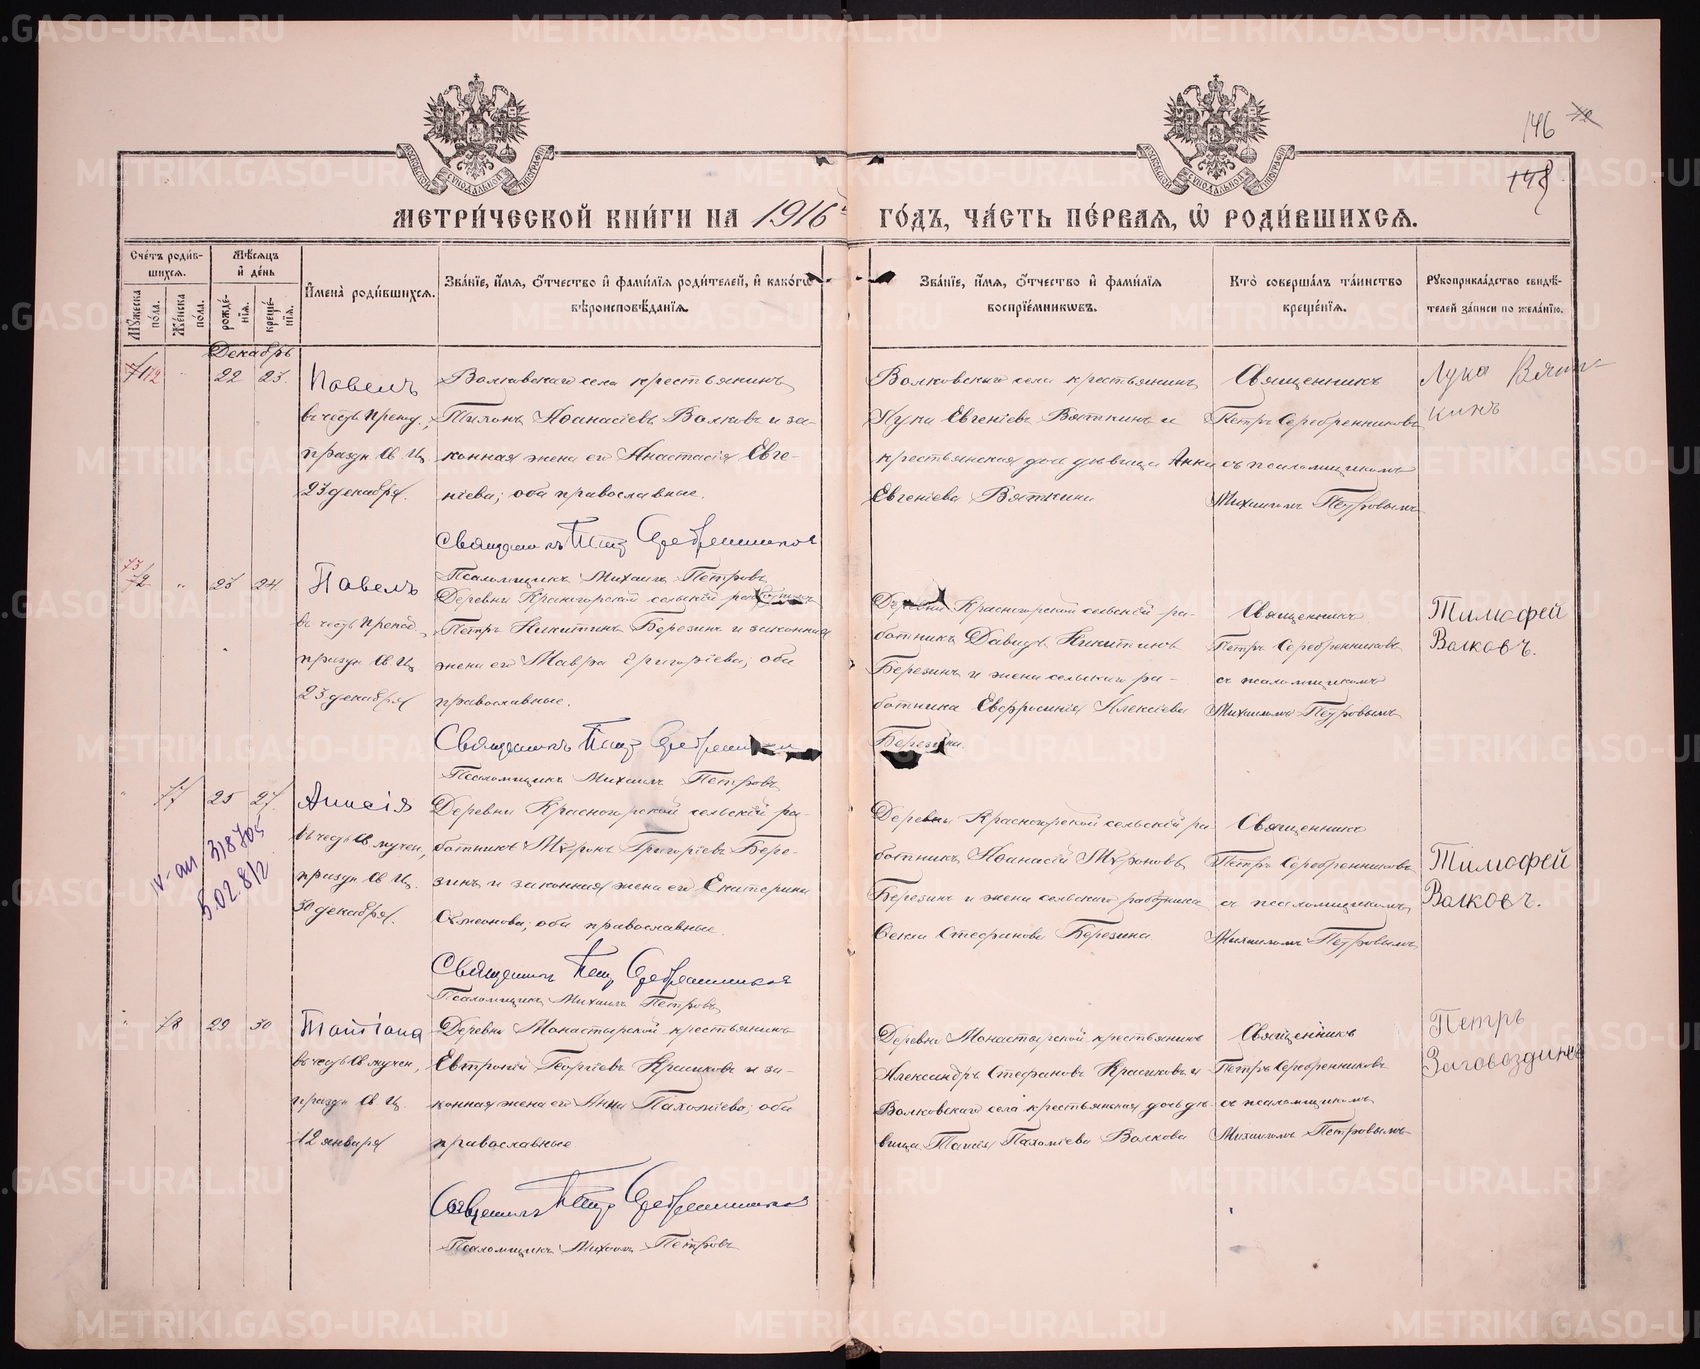 146
148
МЕТРИ́ЧЕСКОЙ КНИ́ГИ НА 1916 ГО́ДЪ, ЧА́СТЬ ПЕ́РВАЯ, Ѡ РОДИ́ВШИХСЯ.
Сче́тъ роди́в-
шихся.
Мѣ́сяцъ
и҆ де́нь
Му́жеска
по́ла.
Же́нска
по́ла.
рожде́-
нїя.
креще́-
нїя.
И҆мена̀ роди́вшихся.
Зва́нїе, и҆́мя, ѻ҆́тчество и҆ фамилїя роди́телей, и҆ како́гѡ
вѣроисповѣ́данїя.
Зва́нїе, и҆́мя, ѻ҆́тчество и҆ фами́лїя
воспрїе́мникѡвъ.
Кто̀ соверша́лъ та́инство
креще́нїя.
Рꙋкоприкла́дство свидѣ́-
телей за́писи по жела́нїю.
Декабрь
22 23.
Павелъ
въ честь
праздн. Св. Ц.
23 декабря.
Волковскаго села крестьянинъ
Тихонъ Аѳанасіевъ Волковъ и за-
конная жена его Анастасія Евге-
ніева; оба православные.
Священникъ Петръ Серебренниковъ
Псаломщикъ Михаилъ Петровъ
Волковскаго села крестьянинъ
Лука Евгеніевъ Вяткинъ и
крестьянская дочь дѣвица Анна
Евгеніева Вяткина
Священникъ
Петръ Серебренниковъ
съ псаломщикомъ
Михаиломъ Петровымъ
Лука Вят-
кинъ
73
72 " 23 24
Павелъ
въ честь
праздн. Св. Ц.
23 декабря
Деревни Красногорской сельскій работникъ
Петръ Никитинъ Березинъ и законная
жена его Мавра Григоріева, оба
православные.
Священникъ Петръ Серебренниковъ
Псаломщикъ Михаилъ Петровъ
Деревни Красногорской сельскій ра-
ботникъ Давидъ Никитинъ
Березинъ и жена сельскаго ра-
ботника Евфросинія Алексіева
Березина.
Священникъ
Петръ Серебренниковъ
съ псаломщикомъ
Михаиломъ Петровымъ
Тимофей
Волковъ.
" 77 25 27.
Анисія
въ честь Св. мучен.,
праздн. Св. Ц.
30 декабря.
Деревни Красногорской сельскій ра-
ботникъ Мѵронъ Григоріевъ Бере-
зинъ и законная жена его Екатерина
православные.
Священникъ Петръ Серебренниковъ
Псаломщикъ Михаилъ Петровъ
Деревни Красногорской сельскій ра
ботникъ Аѳанасій Мѵроновъ
Березинъ и жена сельскаго работника
Стефанова Березина
Священникъ
Петръ Серебренниковъ
съ псаломщикомъ
Михаиломъ Петровымъ
Тимофей
Волковъ.
318705
5.02.82
" 78 29 30
Татіана
въ честь Св. мучен.,
праздн. Св. Ц.
12 января
Деревни Монастырской крестьянинъ
Евтропій Георгіевъ Красиковъ и за-
конная жена его Анна Пахоміева; оба
православные
Священникъ Петръ Серебренниковъ
Псаломщикъ Михаилъ Петровъ
Деревни Монастырской крестьянинъ
Александръ Стефановъ Красиковъ и
Волковскаго села крестьянская дочь дѣ-
вица Таисія Пахоміева Волкова
Священникъ
Петръ Серебренниковъ
съ псаломщикомъ
Михаиломъ Петровымъ
Петръ
Заговоздинъ
METRIKI.GASO-URAL.RU